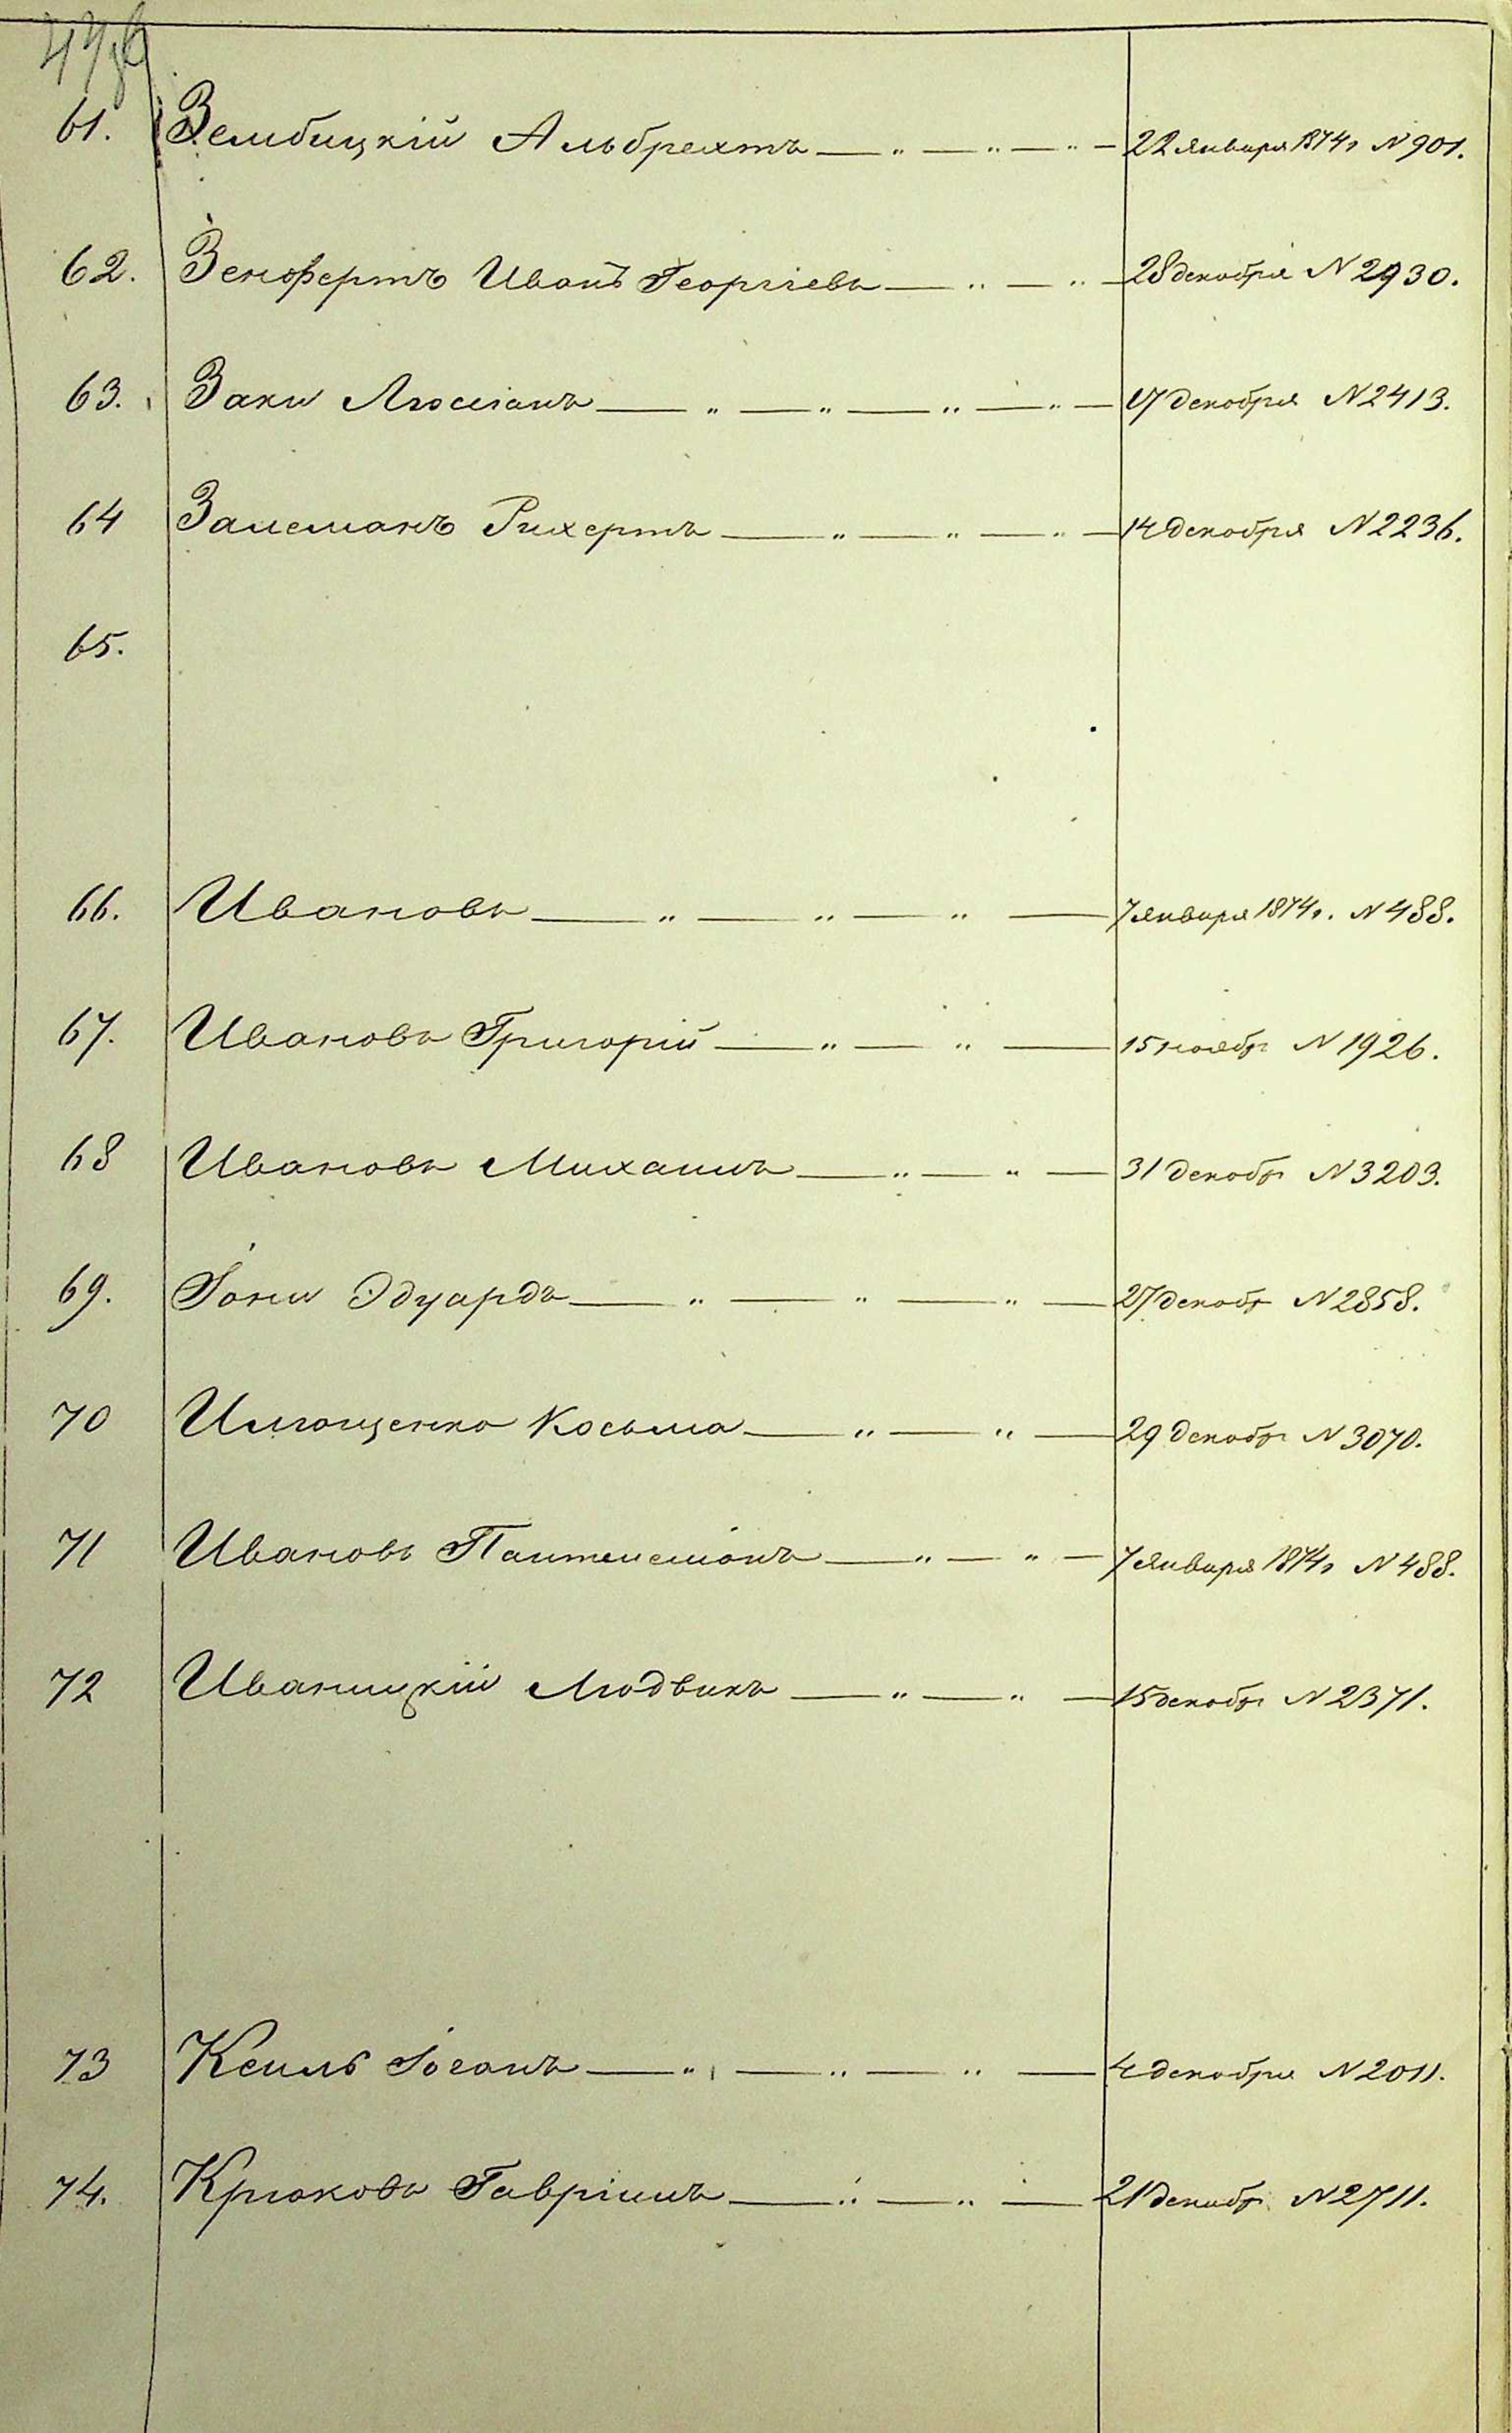 61. Зембицкій Альбрехтъ — „ — „ — „ — 22 января 1874 г N 901.
62. Зенфертъ Иванъ Георгіевъ — „ — „ — 28 декабря N 2930.
63. Заки Люсіанъ — „ — „ — „ — „ — 17 декабря N 2413.
64 Замеманъ Рихертъ — „ — „ — „ — 14 декабря N 2236.
65.
66. Ивановъ — „ — „ — „ — 7 января 1874 г. N 488.
67. Ивановъ Григорій — „ — „ — 15 ноябр N 1926.
68 Ивановъ Михаилъ — „ — „ — 31 декабр N 3203.
69. Іони Эдуардъ — „ — „ — „ — 27 декабр N 2858.
70 Косьма — „ — „ — 29 декабр N 3070.
71 Ивановъ Пантелеімонъ — „ — „ — 7 января 1874 г N 488.
72 Иваницкій Людвикъ — „ — „ — 15 декабр N 2371.
73 Кейль Іоганъ — „ — „ — „ — 4 декабря N 2011.
74. Крюковъ Гавріилъ — „ — „ — 21 декабр N 2711.